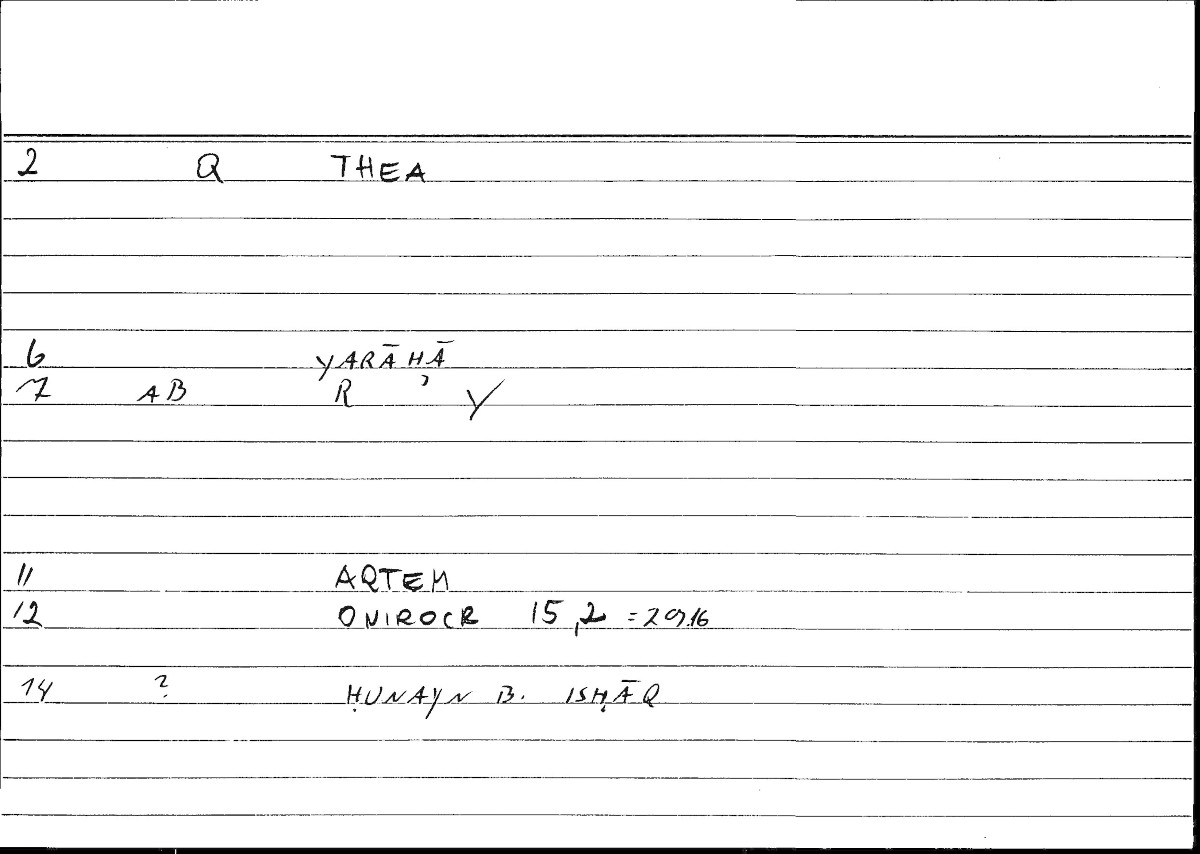 2 Q THEA
6 YARĀḤĀ
7 AB R Y
11 ARTEM
12 ONIROCR 15,2 =
14 ? ḤUNAYN B. ISḤĀQ